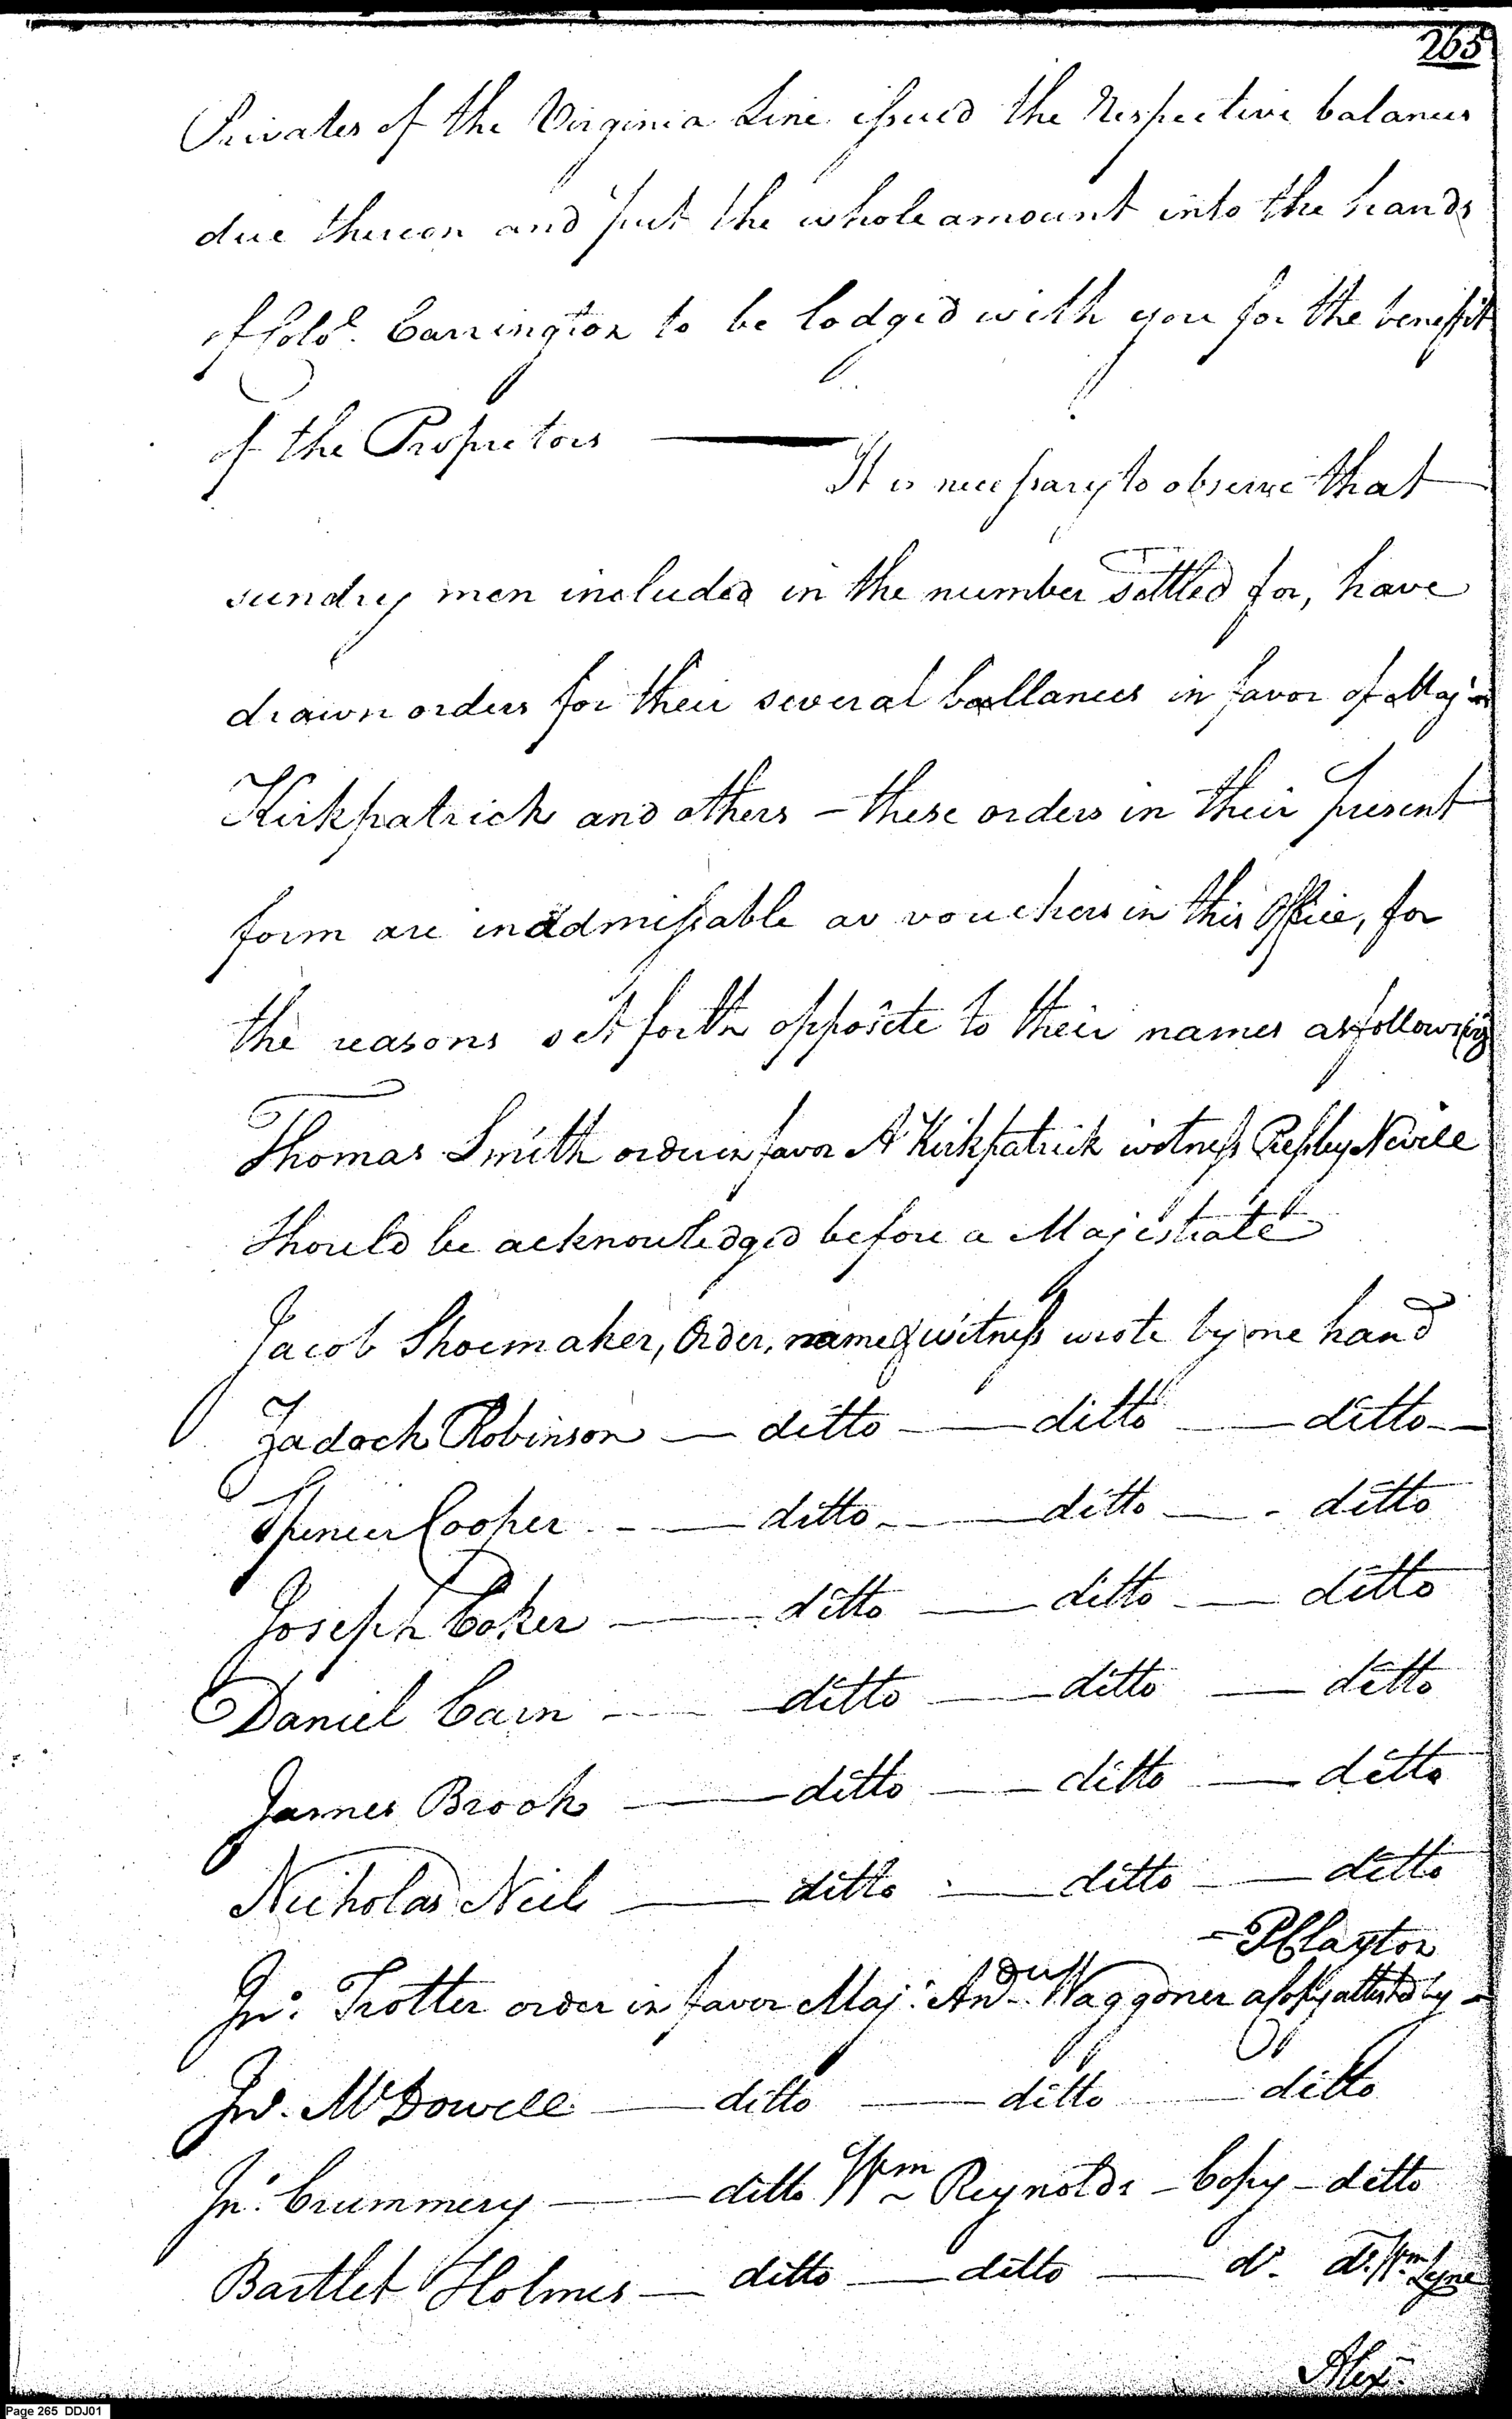 265
Privates of the Virginia Line issued the Respective balances
due thereon and put the whole amount into the hands
of Colo. Carrington to be lodged with you for the benefit
of the Proprietors
It is necessary to observe that
sundry men included in the number settled for, have
drawn orders for their several ballances in favor of Maj.r
Kirkpatrick and others - these orders in their present
form are inadmissable as vouchers in this Office, for
the reasons set forth opposite to their names as follows viz
Thomas Smith order in favor A Kirkpatrick witness Presley Nevill
Should be acknowledged before a Majestrate
Jacob Shoemaker, Order, name & witness wrote by one hand
Zadock Robinson — ditto — ditto — ditto —
Spencer Cooper — ditto — ditto — ditto
Joseph Coker — ditto — ditto — ditto
Daniel Carn — ditto — ditto — ditto
James Brook — ditto — ditto — ditto
Nicholas Neil — ditto — ditto — ditto
- P Clayton
Jno. Trotter order in favor Maj. And. Waggoner a Copy attested by -
Jno. McDowell — ditto — ditto — ditto
Jn. Crummery — ditto Wm Reynolds - Copy - ditto
Bartlet Holmes — ditto — ditto — do. do. Wm. Lyne
Alex.
Page 265 DDJ01